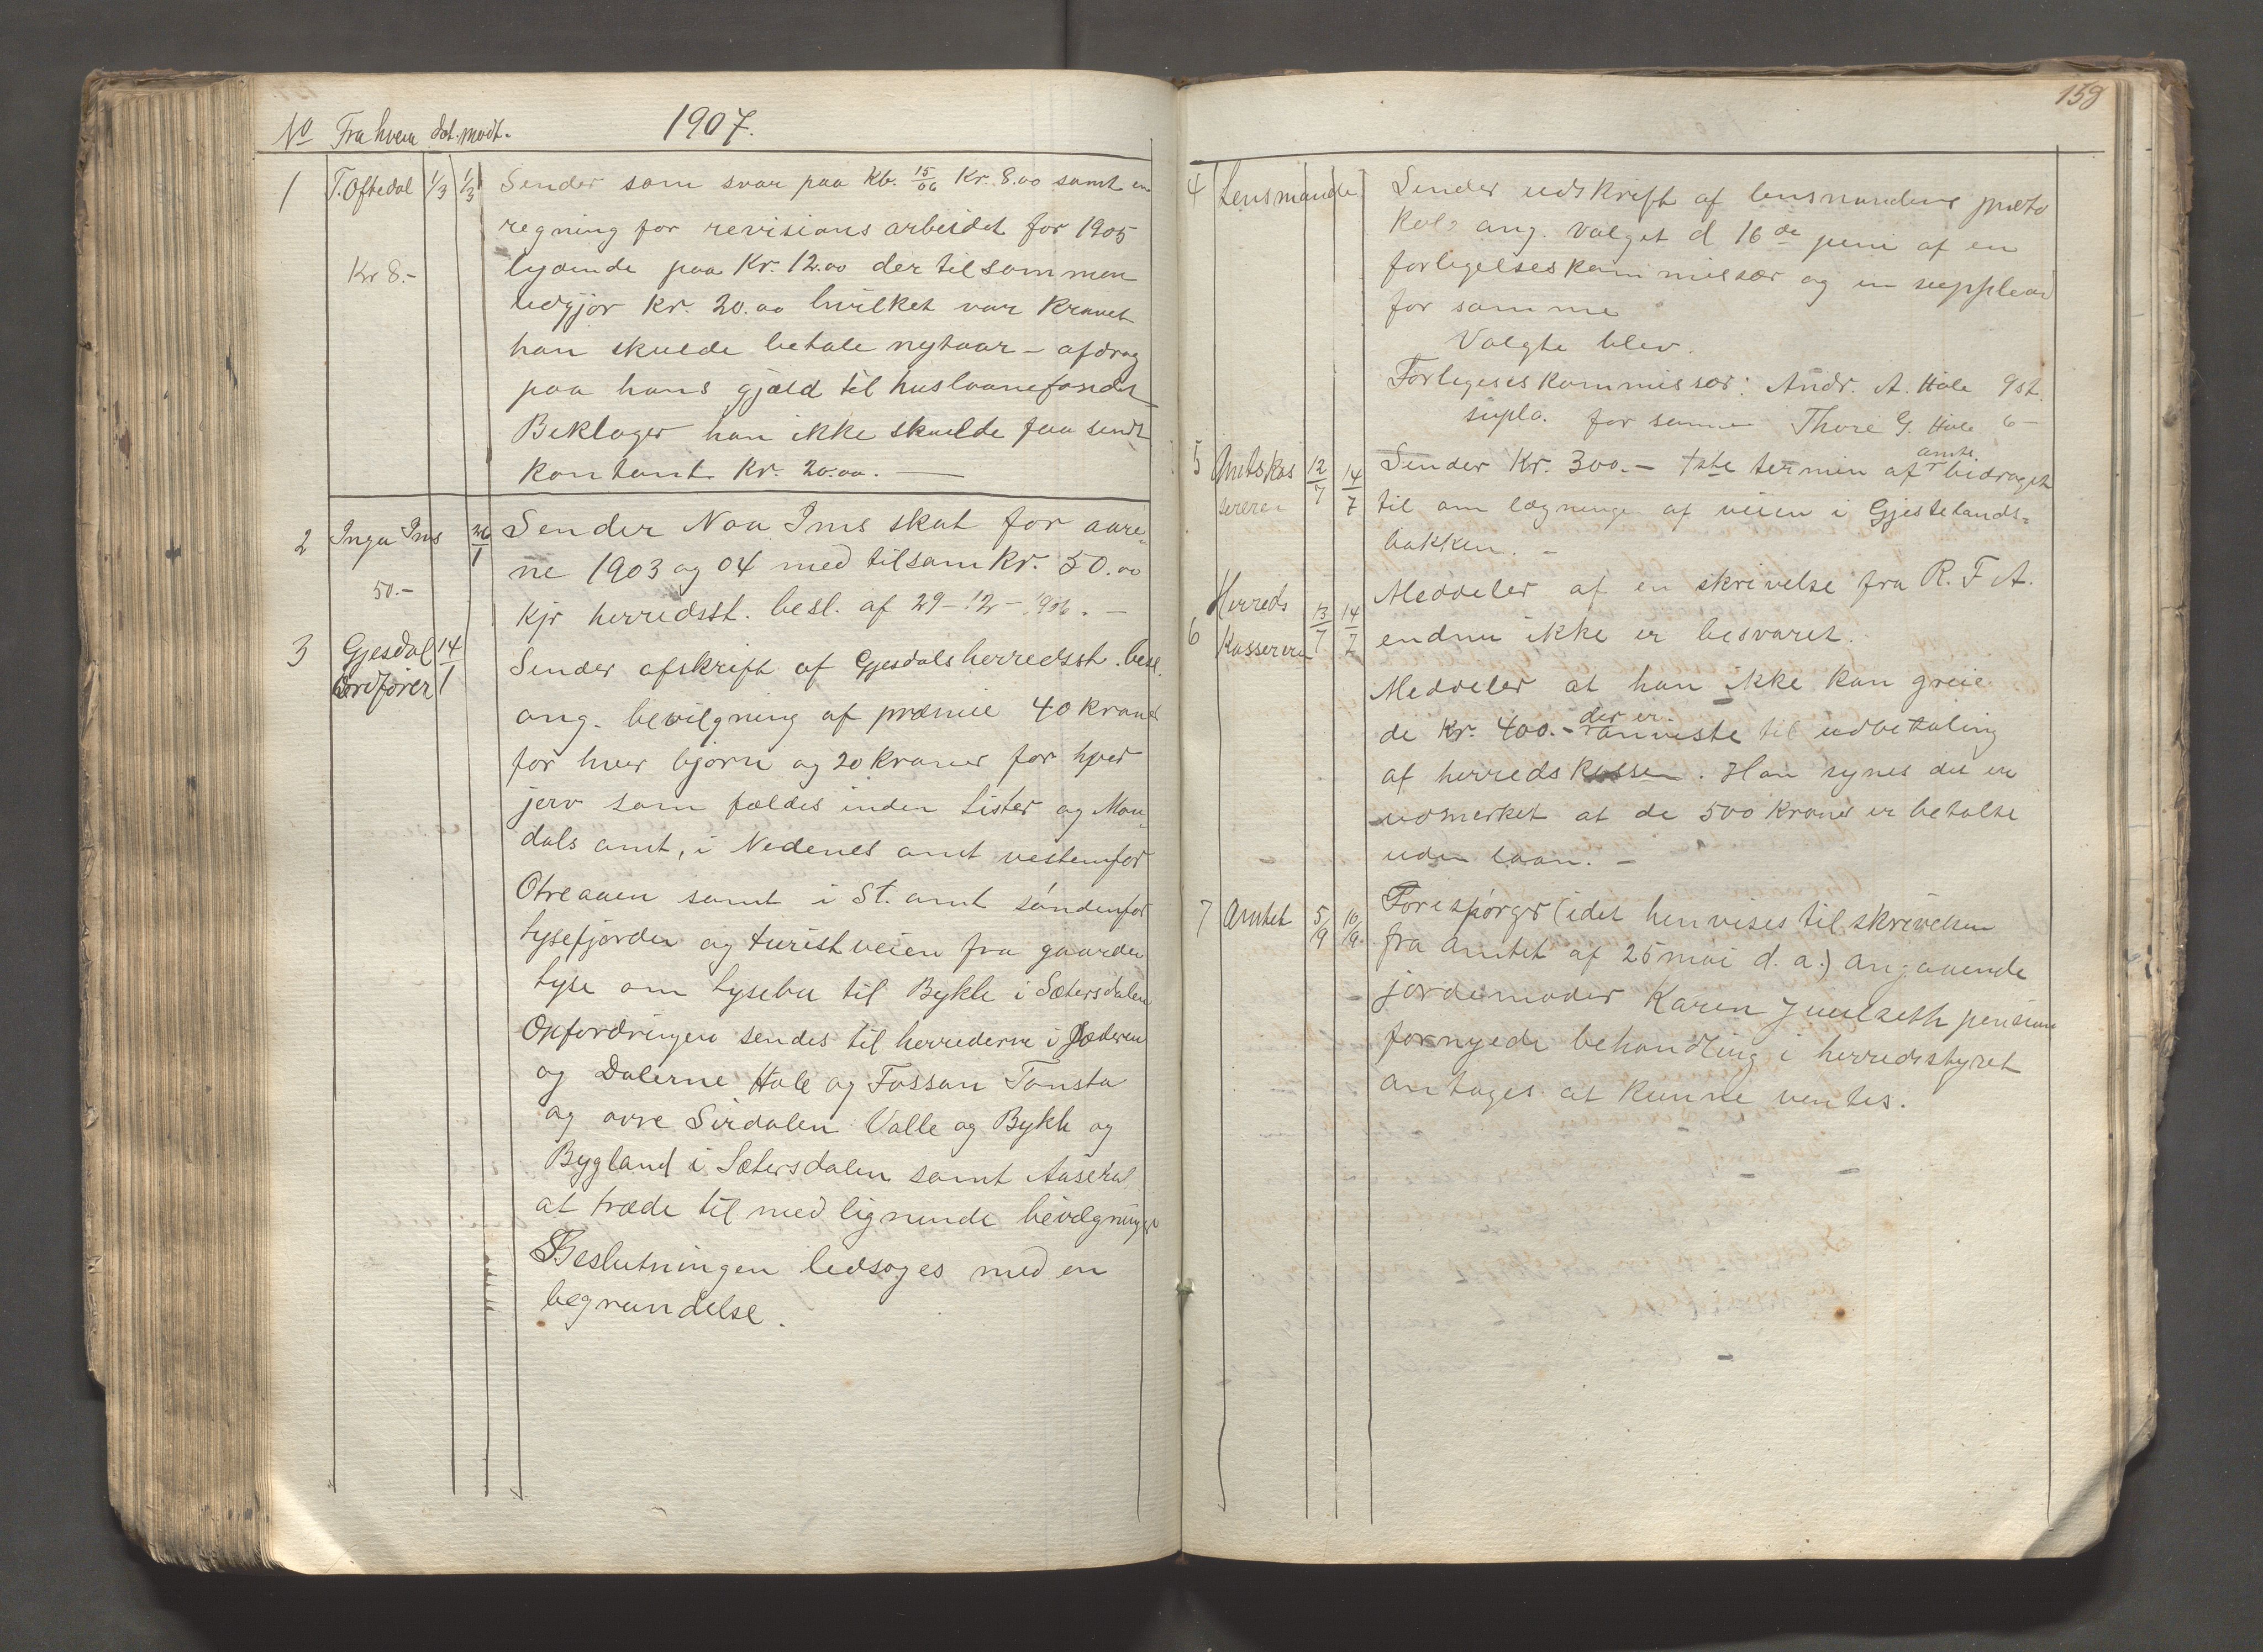 No Fra hvem dat. modt. 1907.
1 T. Oftedal 1/3 1/3 Sender som svar paa Kb. 15/06 Kr. 8.00 samt en
regning for revisions arbeidet for 1905
Kr 8.- lydende paa Kr. 12.00 der tilsammen
udgjør Kr. 20.00 hvilket var Kravet
han skulde betale nytaar - afdrag
paa hans gjæld til huslaanefondet
Beklager han ikke skulde faa sendt
kontant Kr. 20.00. —
2 Inga Ims 26/1 Sender Noa Ims skat for aare-
50.- ne 1903 og 04 med tilsam Kr. 50.00
Kfr herredsst. besl. af 29-12-1906. -
3 Gjesdal 14/1 Sender afskrift af Gjesdals herredsst. besl.
Ordfører ang. bevilgning af præmie 40 kroner
for hver bjørn og 20 kroner for hver
jerv som fældes inden Lister og Man-
dals amt, i Nedenes amt vestenfor
Otreaaen samt i St. amt søndenfor
Lysefjorden og turistveien fra gaarden
Lyse om Lysebu til Bykle i Sætersdalen
Opfordringen sendes til herrederne i Jæderen
og Dalerne Hole og Fossan Tonsta
og øvre Sirdalen Valle og Bykle og
Bygland i Sætersdalen samt Aaseral
at træde til med lignende bevilgninger
Beslutningen ledsages med en
begrundelse.
158
4 Lensmanden Sender udskrift af lensmandens proto
kol ang. valget d 16de juni af en
forligelseskommissær og en suppleant
for samme
Valgte blev.
Forligeseskommissær: Andr. A. Hole 9 st.
supla. for samme Thore G. Hole 6 -
5 Amtskas 12/7 14/7 Sender Kr. 300.- 1ste termin af amts. bidraget
sereren til omlægningen af veien i Gjestelands-
bakken. -
6 Herreds 13/7 14/7 Meddeler at en skrivelse fra R. F. A.
Kassereren endnu ikke er besvaret.
Meddeler at han ikke kan greie
de Kr. 400.- der er anviste til udbetaling
af herredskassen. Han synes det er
udmerket at de 500 kroner er betalte
uden laan. -
7 Amtet 5/9 10/9 Forespørger (idet henvises til skrivelsen
fra amtet af 25 mai d. a.) angaaende
jordemoder Karen pension
fornyede behandling i herredsstyret
antages at kunne ventes.